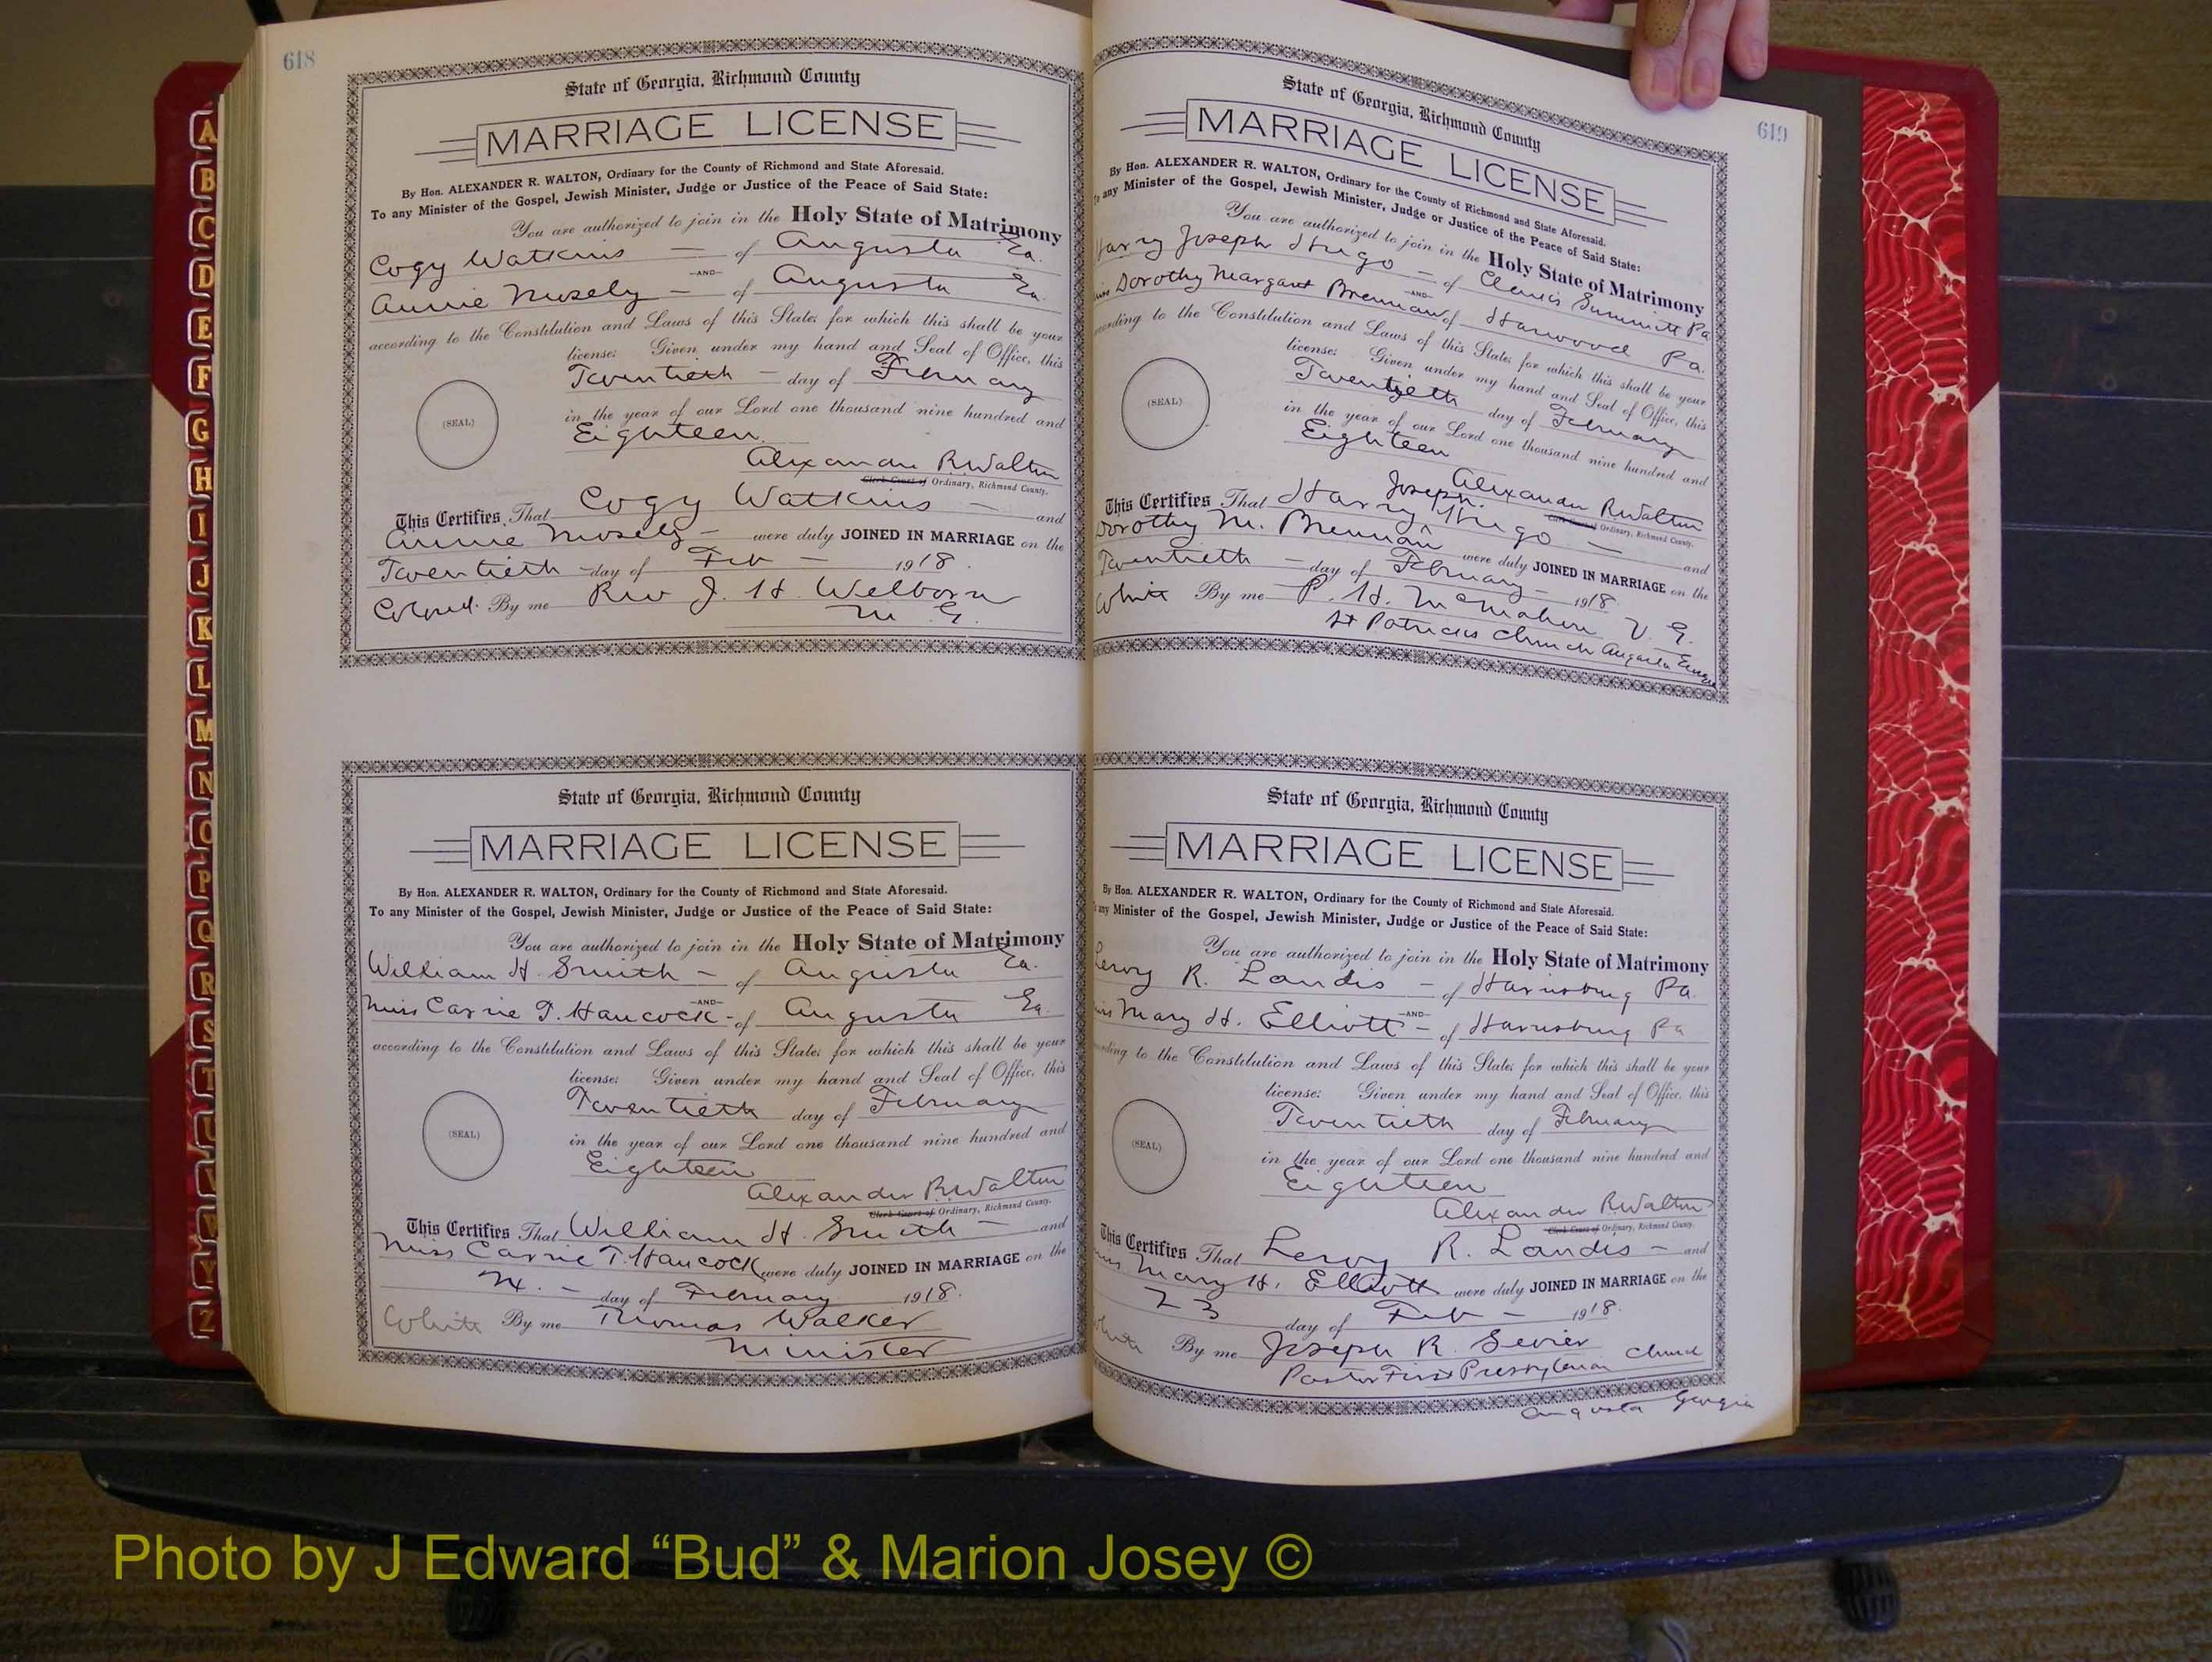 618
State of Georgia, Richmond County
MARRIAGE LICENSE
By Hon. ALEXANDER R. WALTON, Ordinary for the County of Richmond and State Aforesaid.
To any Minister of the Gospel, Jewish Minister, Judge or Justice of the Peace of Said State:
You are authorized to join in the Holy State of Matrimony
Cogy Watkins — of Augusta Ga.
—AND—
Annie Mosely — of Augusta Ga.
according to the Constitution and Laws of this State; for which this shall be your
license: Given under my hand and Seal of Office, this
Twentieth — day of February
(SEAL)
in the year of our Lord one thousand nine hundred and
Eighteen
Alexander R Walton
Clerk Court of Ordinary, Richmond County.
This Certifies That Cogy Watkins — and
Annie Mosely — were duly JOINED IN MARRIAGE on the
Twentieth — day of Feb — 1918.
Colored. By me Rev J. H. Welborn
M. G.
State of Georgia, Richmond County
MARRIAGE LICENSE
By Hon. ALEXANDER R. WALTON, Ordinary for the County of Richmond and State Aforesaid.
To any Minister of the Gospel, Jewish Minister, Judge or Justice of the Peace of Said State:
You are authorized to join in the Holy State of Matrimony
William H. Smith — of Augusta Ga.
—AND—
Miss Carrie T. Hancock — of Augusta Ga.
according to the Constitution and Laws of this State; for which this shall be your
license: Given under my hand and Seal of Office, this
Twentieth day of February
(SEAL)
in the year of our Lord one thousand nine hundred and
Eighteen
Alexander R Walton
Clerk Court of Ordinary, Richmond County.
This Certifies That William H. Smith — and
Miss Carrie T. Hancock were duly JOINED IN MARRIAGE on the
— day of February 1918.
White By me Thomas Walker
Minister
619
State of Georgia, Richmond County
MARRIAGE LICENSE
By Hon. ALEXANDER R. WALTON, Ordinary for the County of Richmond and State Aforesaid.
To any Minister of the Gospel, Jewish Minister, Judge or Justice of the Peace of Said State:
You are authorized to join in the Holy State of Matrimony
Harry Joseph Hugo — of Clarks Summitt Pa
—AND—
Miss Dorothy Margaret Brennan of Harwood Pa.
according to the Constitution and Laws of this State; for which this shall be your
license: Given under my hand and Seal of Office, this
Twentieth day of February
(SEAL)
in the year of our Lord one thousand nine hundred and
Eighteen
Alexander R Walton
Clerk Court of Ordinary, Richmond County.
This Certifies That Harry Joseph Hugo — and
Dorothy M. Brennan were duly JOINED IN MARRIAGE on the
Twentieth — day of February — 1918.
White By me P. H. McMahon V. G.
St Patricks Church Augusta Georgia
State of Georgia, Richmond County
MARRIAGE LICENSE
By Hon. ALEXANDER R. WALTON, Ordinary for the County of Richmond and State Aforesaid.
any Minister of the Gospel, Jewish Minister, Judge or Justice of the Peace of Said State:
You are authorized to join in the Holy State of Matrimony
Leroy R. Landis — of Harrisburg Pa.
—AND—
Miss Mary H. Elliott — of Harrisburg Pa
according to the Constitution and Laws of this State; for which this shall be your
license: Given under my hand and Seal of Office, this
Twentieth day of February
(SEAL)
in the year of our Lord one thousand nine hundred and
Eighteen
Alexander R Walton
Clerk Court of Ordinary, Richmond County.
This Certifies That Leroy R. Landis — and
Miss Mary H. Elliott were duly JOINED IN MARRIAGE on the
23 day of Feb — 1918.
White By me Joseph R. Sevier
Pastor First Presbyterian Church
Augusta Georgia
A
B
C
D
E
F
G
H
I
J
K
L
M
N
O
P
Q
R
S
T
U
V
W
Y
Z
Photo by J Edward “Bud” & Marion Josey ©